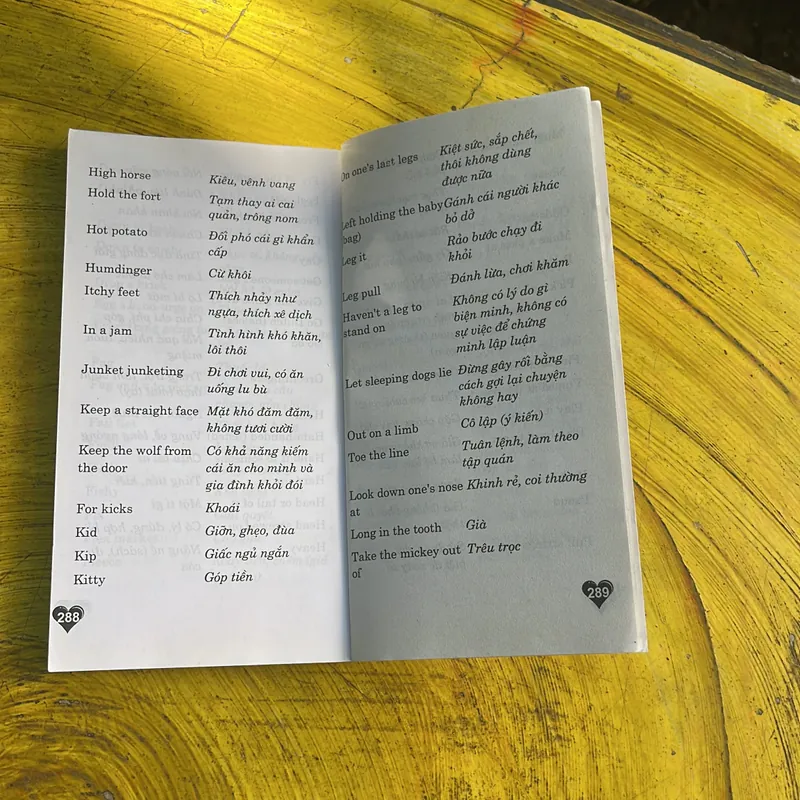 High horse Kiêu, vênh vang
Hold the fort Tạm thay ai cai
quản, trông nom
Hot potato Đối phó cái gì khẩn
cấp
Humdinger Cừ khôi
Itchy feet Thích nhảy như
ngựa, thích xê dịch
In a jam Tình hình khó khăn,
lôi thôi
Junket junketing Đi chơi vui, có ăn
uống lu bù
Keep a straight face Mặt khó đăm đăm,
không tươi cười
Keep the wolf from Có khả năng kiếm
the door cái ăn cho mình và
gia đình khỏi đói
For kicks Khoái
Kid Giỡn, ghẹo, đùa
Kip Giấc ngủ ngắn
Kitty Góp tiền
288
On one's last legs Kiệt sức, sắp chết,
thôi không dùng
được nữa
Left holding the baby Gánh cái người khác
(bag) bỏ dở
Leg it Rảo bước chạy đi
khỏi
Leg pull Đánh lừa, chơi khăm
Haven't a leg to Không có lý do gì
stand on biện minh, không có
sự việc để chứng
minh lập luận
Let sleeping dogs lie Đừng gây rối bằng
cách gợi lại chuyện
không hay
Out on a limb Cô lập (ý kiến)
Toe the line Tuân lệnh, làm theo
tập quán
Look down one's nose Khinh rẻ, coi thường
at
Long in the tooth Già
Take the mickey out Trêu trọc
of
289